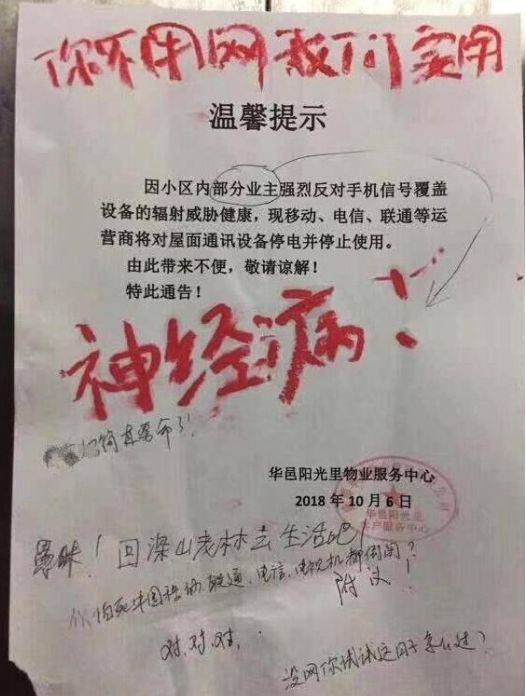 你不用网我们实用
温馨提示
因小区内部分业主强烈反对手机信号覆盖
设备的辐射威胁健康，现移动、电信、联通等运
营商将对屋面通讯设备停电并停止使用。
由此带来不便，敬请谅解！
特此通告！
神经病！
华邑阳光里物业服务中心
2018年10月6日
华邑阳光里
客户服务中心
愚昧！回深山老林去生活吧！
附议！
对、对、对、
没网你试试这日子怎么过？